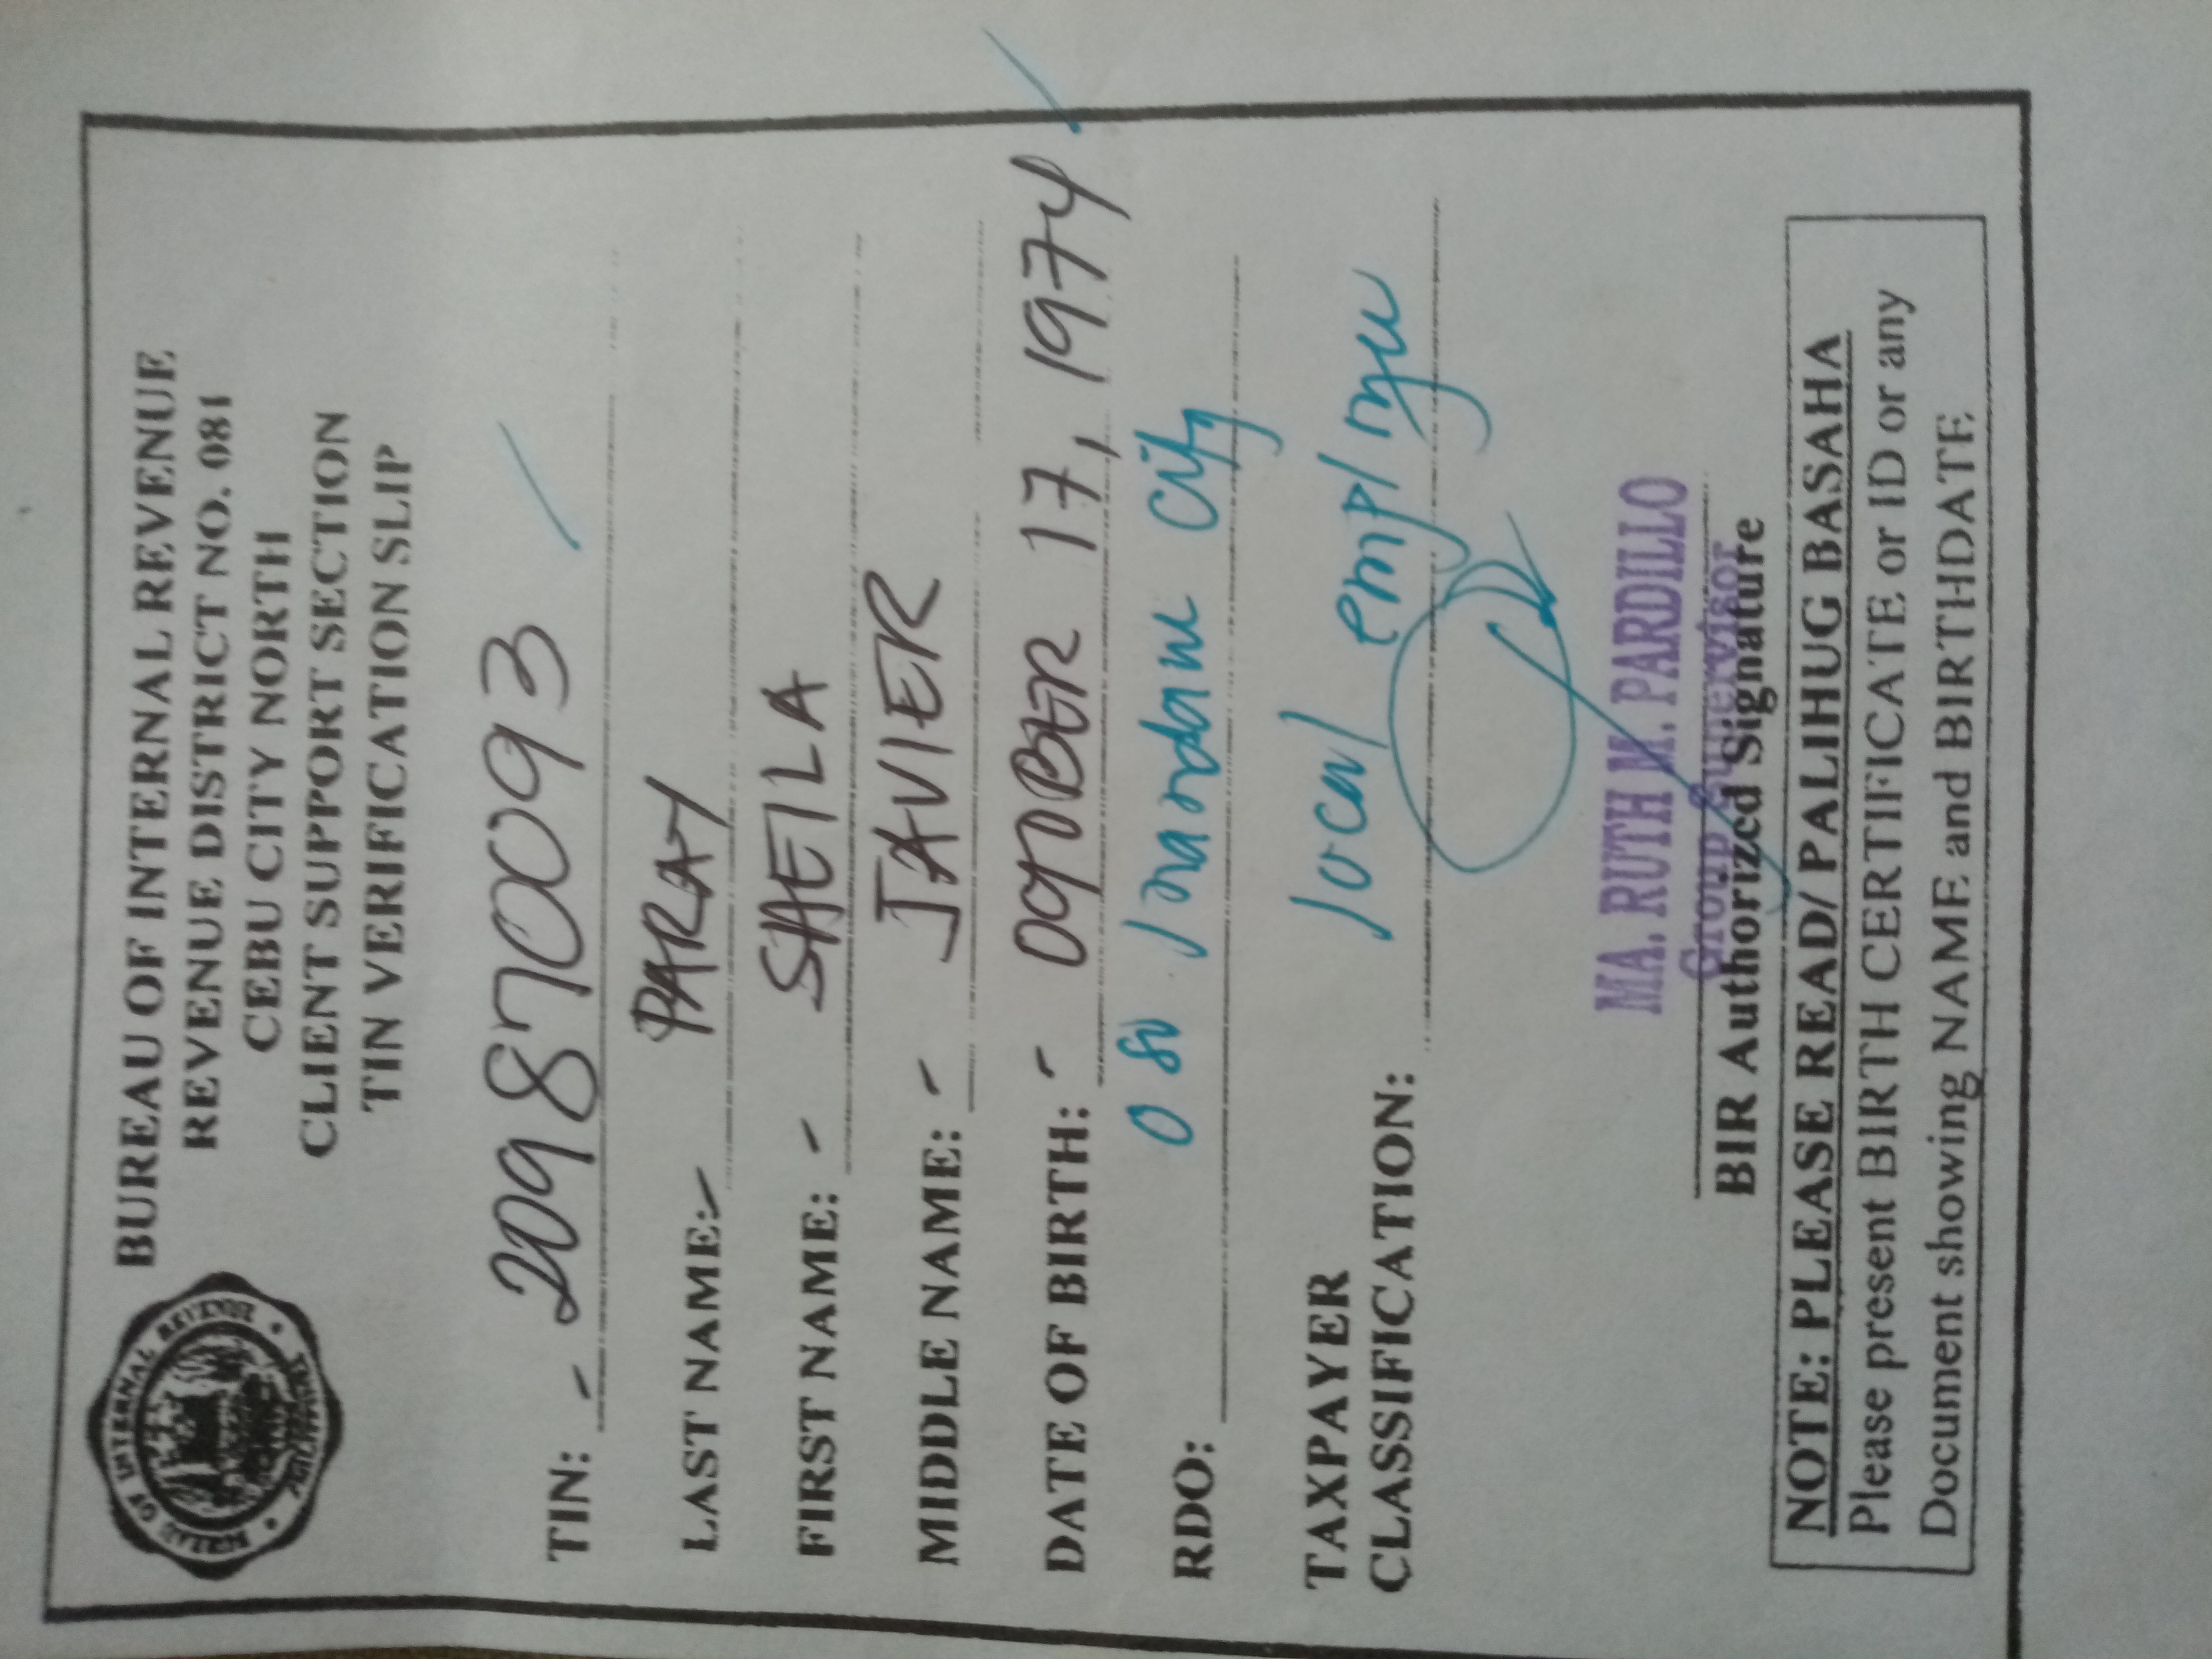 BUREAU OF INTERNAL REVENUE
REVENUE DISTRICT NO. 081
CEBU CITY NORTH
CLIENT SUPPORT SECTION
TIN VERIFICATION SLIP
BUREAU OF INTERNAL REVENUE PHILIPPINES
TIN: - 209870093
LAST NAME: - PARAY
FIRST NAME: - SHEILA
MIDDLE NAME: - JAVIER
DATE OF BIRTH: - OCTOBER 17, 1974
RDO: 080 / mandaue city
TAXPAYER
CLASSIFICATION: local
MA. RUTH M. PARDILLO
Group Supervisor
BIR Authorized Signature
NOTE: PLEASE READ/ PALIHUG BASAHA
Please present BIRTH CERTIFICATE or ID or any
Document showing NAME and BIRTHDATE